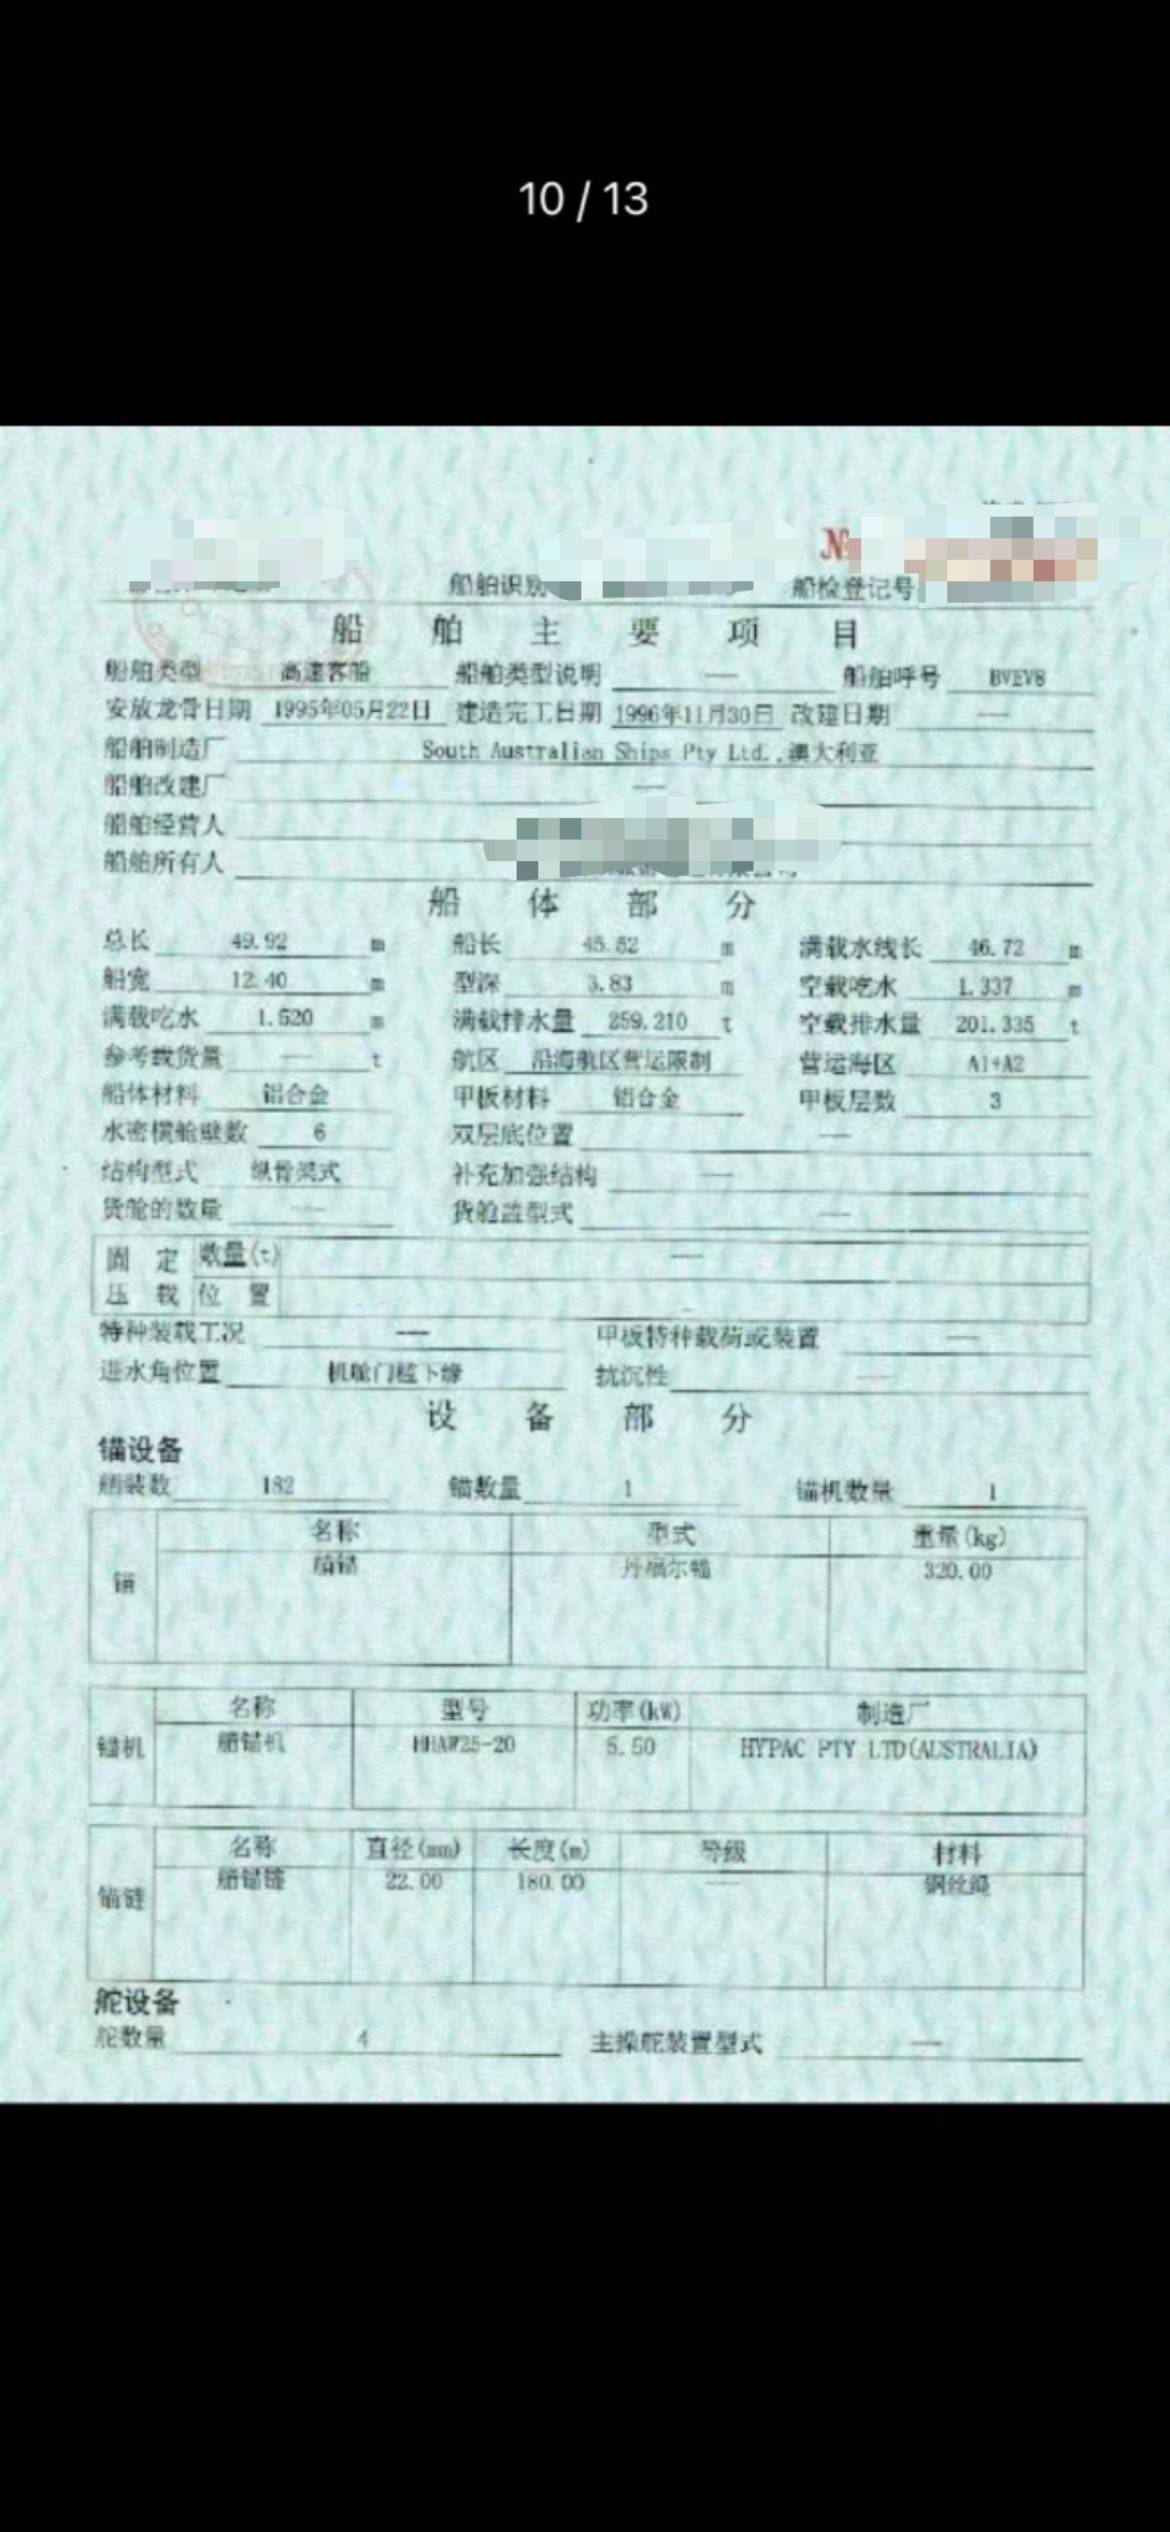 10 / 13
№
船舶识别 船检登记号
船舶主要项目
船舶类型 高速客船 船舶类型说明 — 船舶呼号 BVEV8
安放龙骨日期 1995年05月22日 建造完工日期 1996年11月30日 改建日期 —
船舶制造厂 South Australian Ships Pty Ltd.,澳大利亚
船舶改建厂 —
船舶经营人
船舶所有人
船体部分
总长 49.92 m 船长 45.52 m 满载水线长 46.72 m
船宽 12.40 m 型深 3.83 m 空载吃水 1.337 m
满载吃水 1.520 m 满载排水量 259.210 t 空载排水量 201.335 t
参考载货量 — t 航区 沿海航区营运限制 营运海区 A1+A2
船体材料 铝合金 甲板材料 铝合金 甲板层数 3
水密横舱壁数 6 双层底位置 —
结构型式 纵骨架式 补充加强结构 —
货舱的数量 — 货舱盖型式 —
固定 数量(t) —
压载 位置
特种装载工况 — 甲板特种载荷或装置 —
进水角位置 机舱门槛下缘 抗沉性 —
设备部分
锚设备
舾装数 182 锚数量 1 锚机数量 1
名称 型式 重量(kg)
锚 艏锚 丹福尔锚 320.00
名称 型号 功率(kW) 制造厂
锚机 艏锚机 HHAW25-20 5.50 HYPAC PTY LTD(AUSTRALIA)
名称 直径(mm) 长度(m) 等级 材料
锚链 艏锚链 22.00 180.00 — 钢丝绳
舵设备
舵数量 4 主操舵装置型式 —